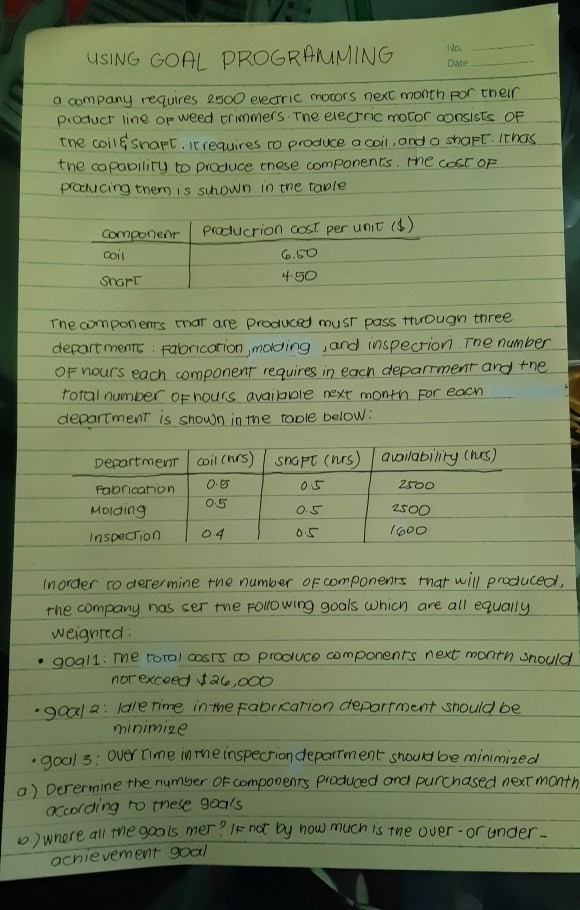 USING GOAL PROGRAMMING
No.
Date
a company requires 2500 electric motors next month for their
product line of weed trimmers. The electric motor consists of
the coil & shaft. it requires to produce a coil, and a shaft. It has
the capability to produce these components. the cost of
producing them is suhown in the table
component | Production cost per unit ($)
coil 6.50
shaft 4.50
The components that are produced must pass through three
departments: fabrication, molding, and inspection The number
of hours each component requires in each department and the
total number of hours available next month for each
department is shown in the table below:
Department | coil (hrs) | shaft (hrs) | availability (hrs)
Fabrication 0.5 0.5 2500
Molding 0.5 0.5 2500
Inspection 0.4 0.5 1600
In order to determine the number of components that will produced,
the company has set the following goals which are all equally
weighted:
• goal 1: The total costs to produce components next month should
not exceed $26,000
• goal 2: Idle time in the fabrication department should be
minimize
• goal 3: over time in the inspection department should be minimized
a) Determine the number of components produced and purchased next month
according to these goals
b.) where all the goals met? If not by how much is the over - or under-
achievement goal